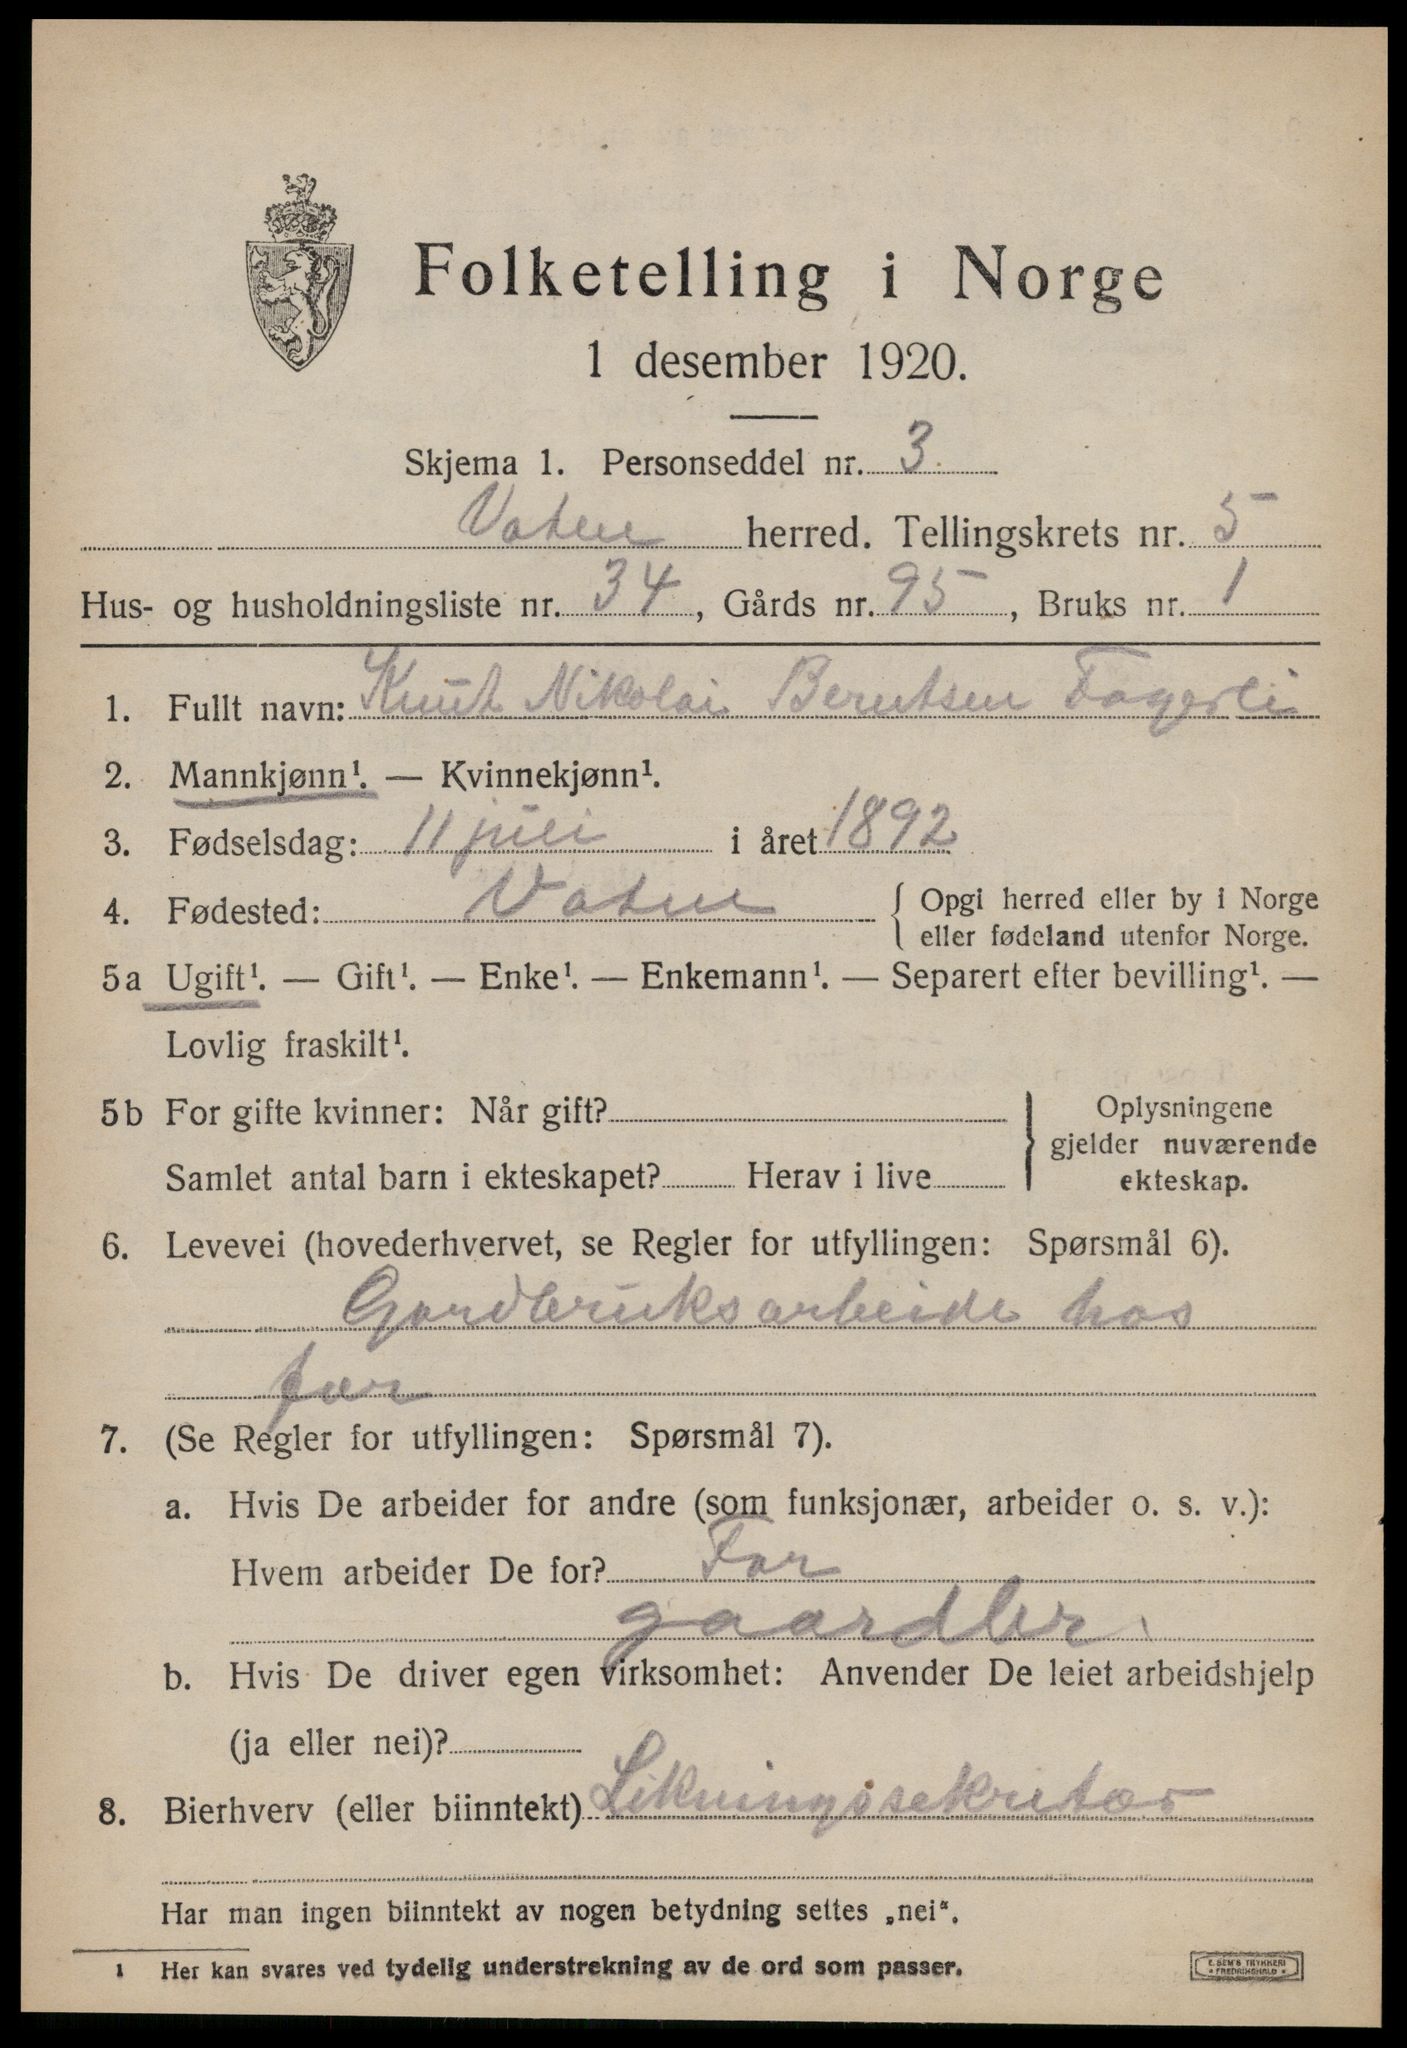 Folketelling i Norge
1 desember 1920.
Skjema 1. Personseddel nr. 3
Vatne herred. Tellingskrets nr. 5
Hus- og husholdningsliste nr. 34, Gårds nr. 95, Bruks nr. 1
1. Fullt navn: Knut Nikolai Berntsen Fagerli
2. Mannkjønn¹. — Kvinnekjønn¹.
3. Fødselsdag: 11 juli i året 1892
4. Fødested: Vatne { Opgi herred eller by i Norge
eller fødeland utenfor Norge.
5a Ugift¹. — Gift¹. — Enke¹. — Enkemann¹. — Separert efter bevilling¹. —
Lovlig fraskilt¹.
5b For gifte kvinner: Når gift? } Oplysningene
gjelder nuværende
Samlet antal barn i ekteskapet? Herav i live ekteskap.
6. Levevei (hovederhvervet, se Regler for utfyllingen: Spørsmål 6).
Gardbruksarbeide hos
far
7. (Se Regler for utfyllingen: Spørsmål 7).
a. Hvis De arbeider for andre (som funksjonær, arbeider o. s. v.):
Hvem arbeider De for? Far
gaardbr.
b. Hvis De driver egen virksomhet: Anvender De leiet arbeidshjelp
(ja eller nei)?
8. Bierhverv (eller biinntekt) Likningssekretær
Har man ingen biinntekt av nogen betydning settes „nei“.
1 Her kan svares ved tydelig understrekning av de ord som passer.
E. SEM'S TRYKKERI
* FREDRIKSHALD *